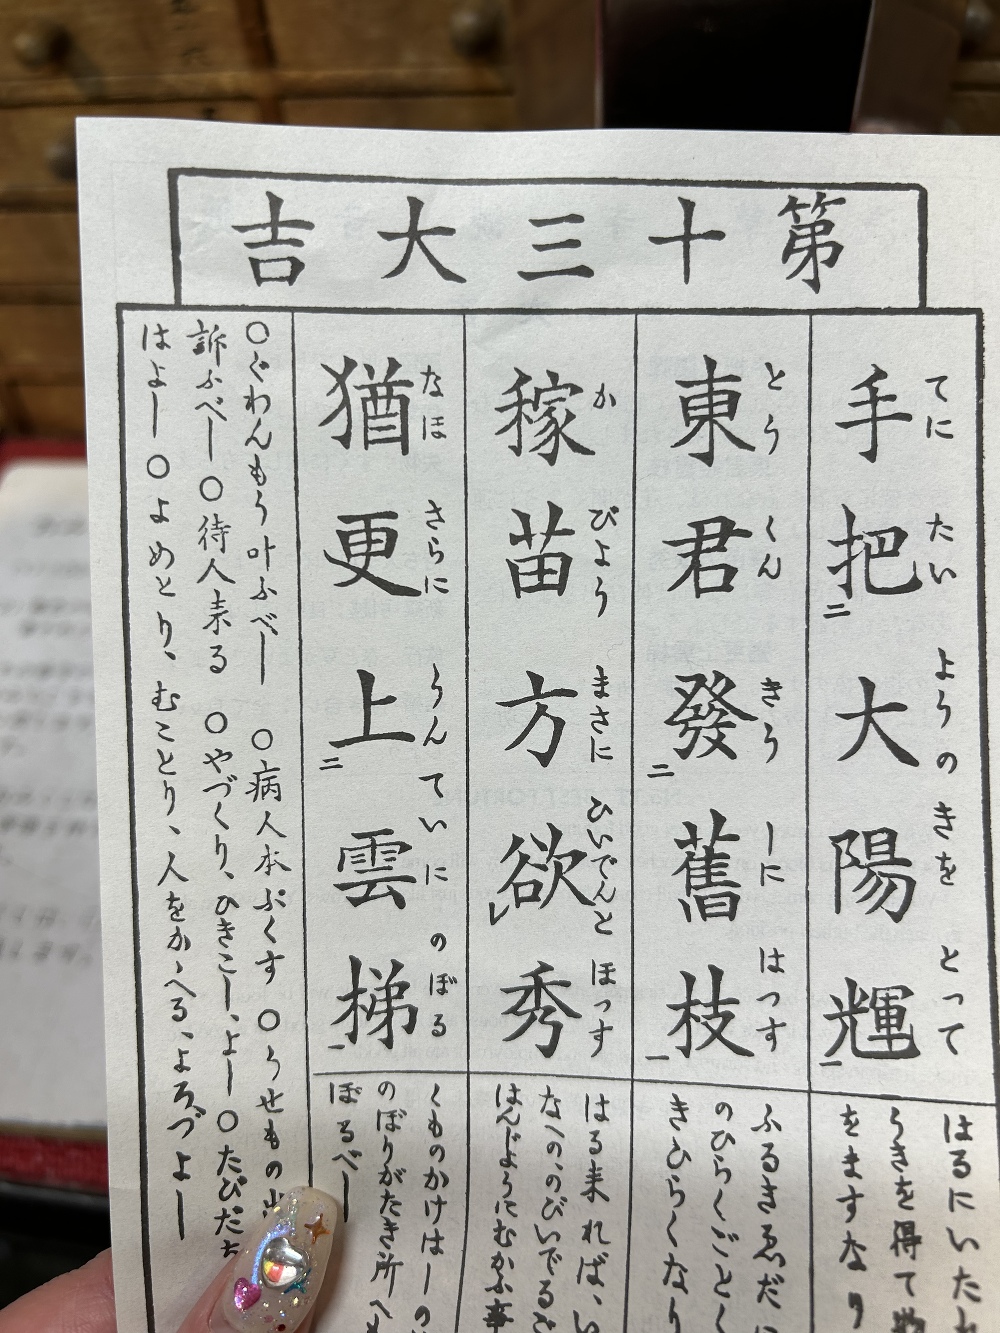 第十三大吉
手把大陽輝
てに たい ようの きを とって
二 一
はるにいたれ
うきを得て
をますなり
東君發舊枝
とう くん きう しに はつす
二 一
ふるきゑだに
のひらくごとく
きひらくなり
稼苗方欲秀
か びよう まさに ひいでんと ほつす
レ
はる来れば、い
なへの、のびいでるさ
はんじようにむかふ事
猶更上雲梯
なほ さらに うん ていに のぼる
二 一
くものかけはしの
のぼりがたき所へも
ぼるべし
○ぐわんもう叶ふべし ○病人本ぷくす ○うせもの出
訴ふべし ○待人来る ○やづくり、ひきこし、よし ○たびだち
はよし ○よめとり、むことり、人をかゝへる、よろづよし